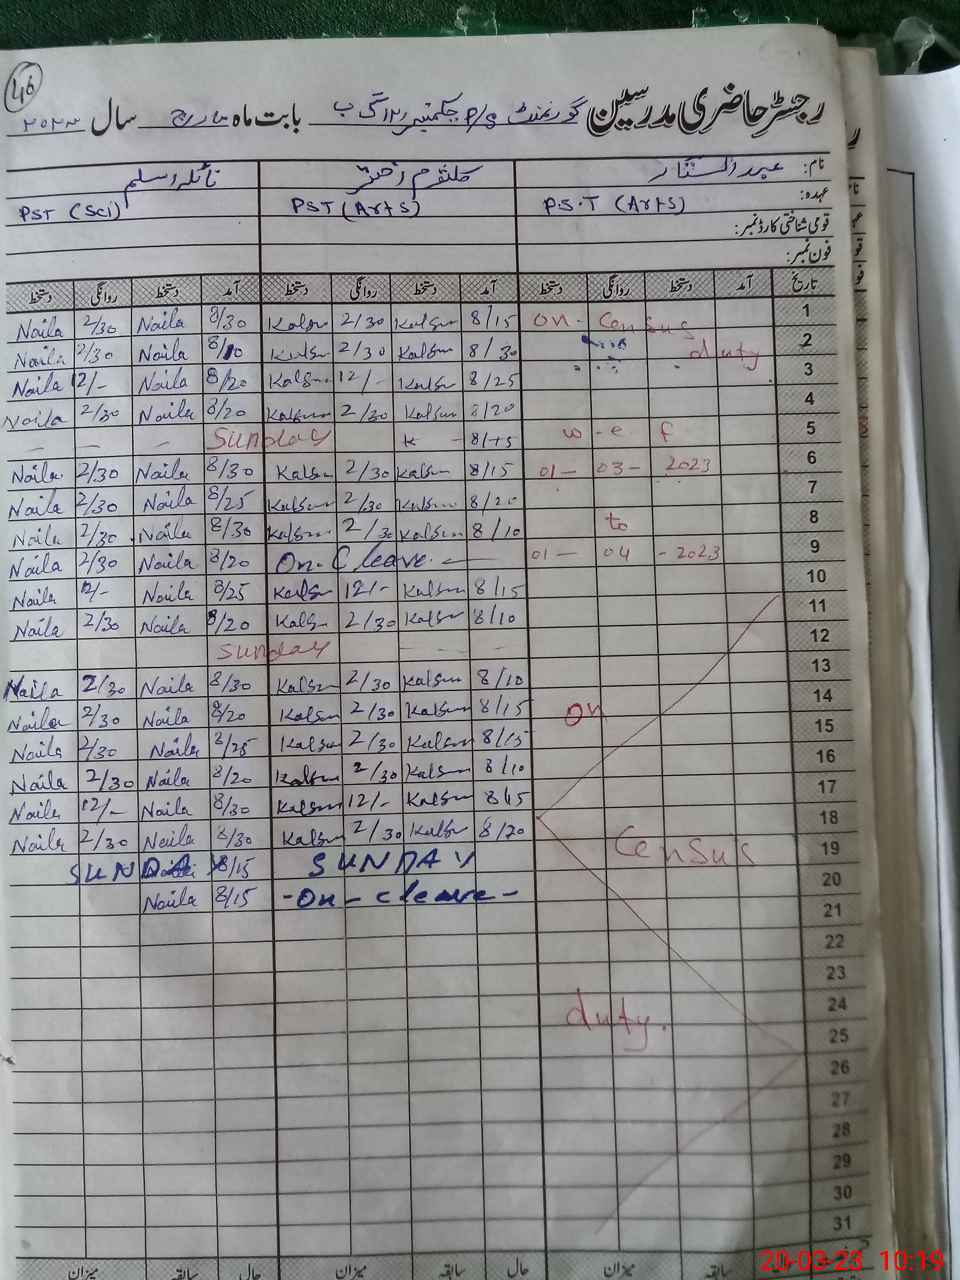 46
رجسٹر حاضری مدرسین گورنمنٹ P/S چک نمبر ۱۲۰ گ ب بابت ماہ مارچ سال ۲۰۲۳
نام: عبدالستار کلثوم اختر نائلہ اسلم
عہدہ: P.S.T (Arts) PST (Arts) PST (Sci)
قومی شناختی کارڈ نمبر:
فون نمبر:
تاریخ آمد دستخط روانگی دستخط آمد دستخط روانگی دستخط آمد دستخط روانگی دستخط
Naila 2/30 Naila 8/30 Kalsum 2/30 Kalsum 8/15 on Census 1
Naila 2/30 Naila 8/10 Kalsum 2/30 Kalsum 8/30 duty 2
Naila 12/- Naila 8/20 Kalsum 12/- Kalsum 8/25 3
Naila 2/30 Naila 8/20 Kalsum 2/30 Kalsum 8/20 4
- - - Sunday K - 8/15 w-e f 5
Naila 2/30 Naila 8/30 Kalsum 2/30 Kalsum 8/15 01-03-2023 6
Naila 2/30 Naila 8/25 Kalsum 2/30 Kalsum 8/20 7
Naila 2/30 Naila 8/30 Kalsum 2/30 Kalsum 8/10 to 8
Naila 2/30 Naila 8/20 On-C leave. 01-04-2023 9
Naila 12/- Naila 8/25 Kalsum 12/- Kalsum 8/15 10
Naila 2/30 Naila 8/20 Kalsum 2/30 Kalsum 8/10 11
Sunday 12
Naila 2/30 Naila 8/30 Kalsum 2/30 Kalsum 8/10 13
Naila 2/30 Naila 8/20 Kalsum 2/30 Kalsum 8/15 on 14
Naila 2/30 Naila 8/25 Kalsum 2/30 Kalsum 8/15 15
Naila 2/30 Naila 8/20 Kalsum 2/30 Kalsum 8/10 16
Naila 12/- Naila 8/30 Kalsum 12/- Kalsum 8/15 17
Naila 2/30 Naila 8/30 Kalsum 2/30 Kalsum 8/20 18
SUNDAY 8/15 SUNDAY Census 19
Naila 8/15 -On-cleave- 20
21
22
23
duty. 24
25
26
27
28
29
30
31
میزان سابقہ حال میزان سابقہ حال میزان
20-03-23 10:19